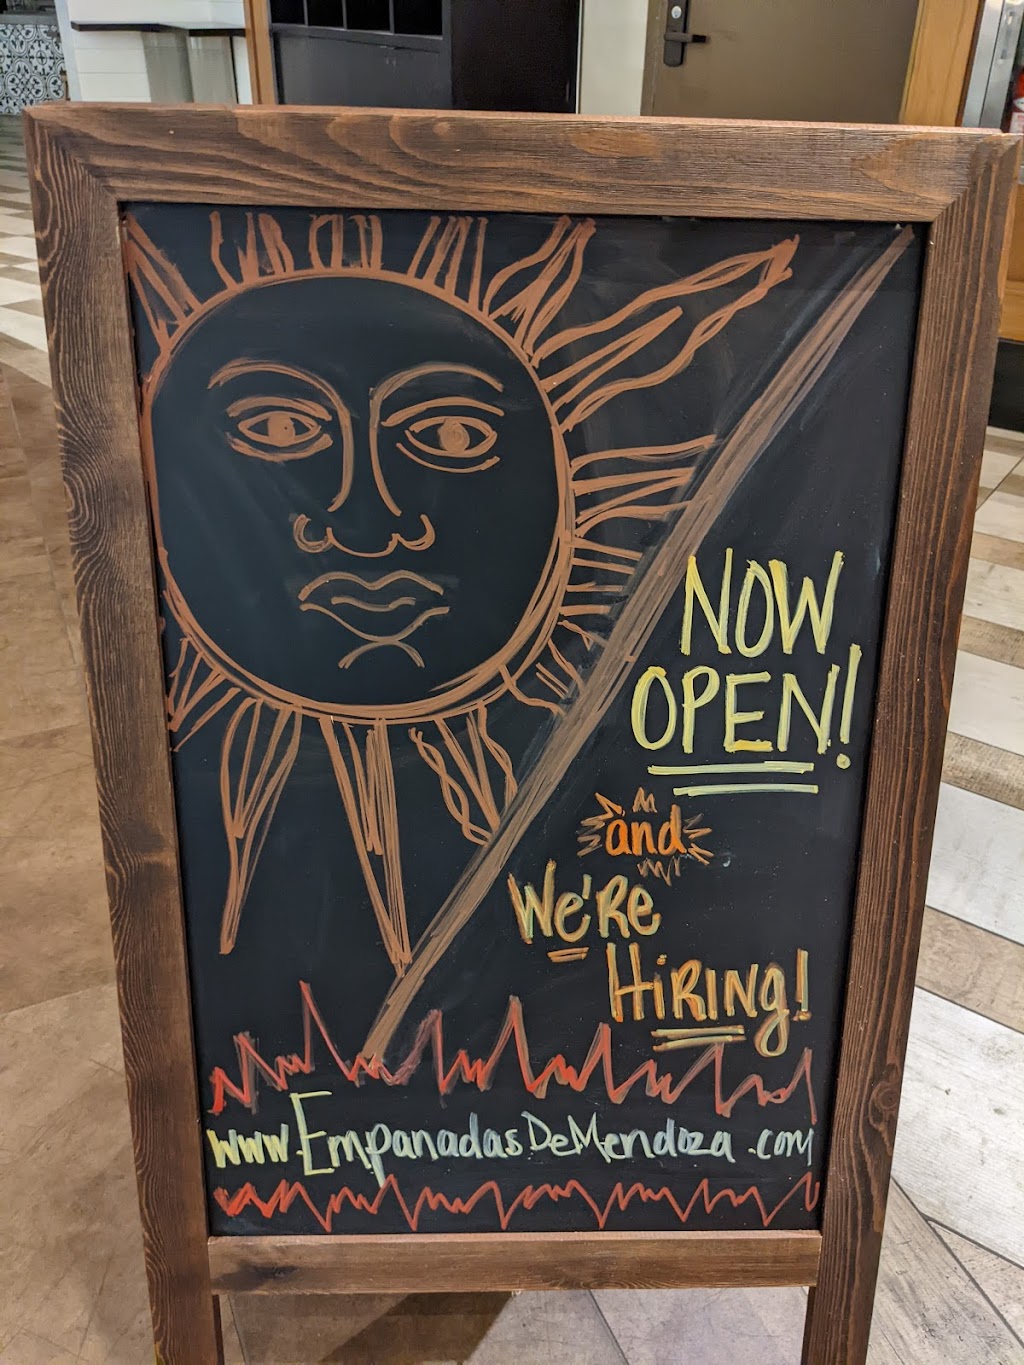 NOW
OPEN!
and
We're
HiRING!
www.EmpanadasDeMendoza.com